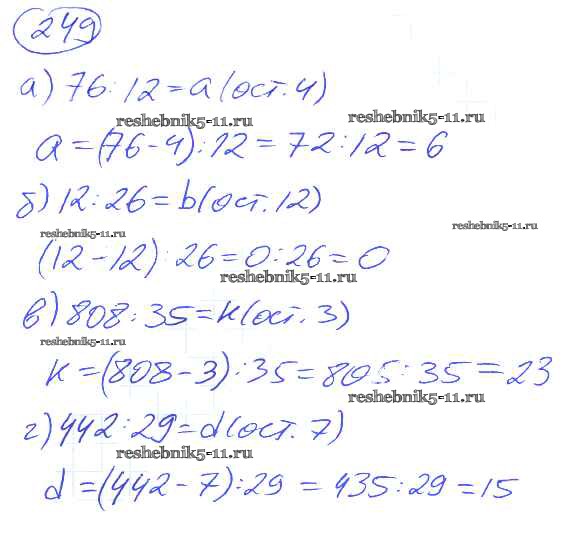 249
а) 76:12=a(ост.4)
reshebnik5-11.ru reshebnik5-11.ru
a=(76-4):12=72:12=6
б) 12:26=b(ост.12)
reshebnik5-11.ru reshebnik5-11.ru
(12-12):26=0:26=0
reshebnik5-11.ru
в) 808:35=k(ост.3)
reshebnik5-11.ru
k=(808-3):35=805:35=23
reshebnik5-11.ru
г) 442:29=d(ост.7)
reshebnik5-11.ru
d=(442-7):29=435:29=15